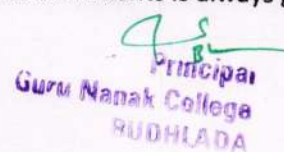 is always
Principal
Guru Nanak College
BUDHLADA